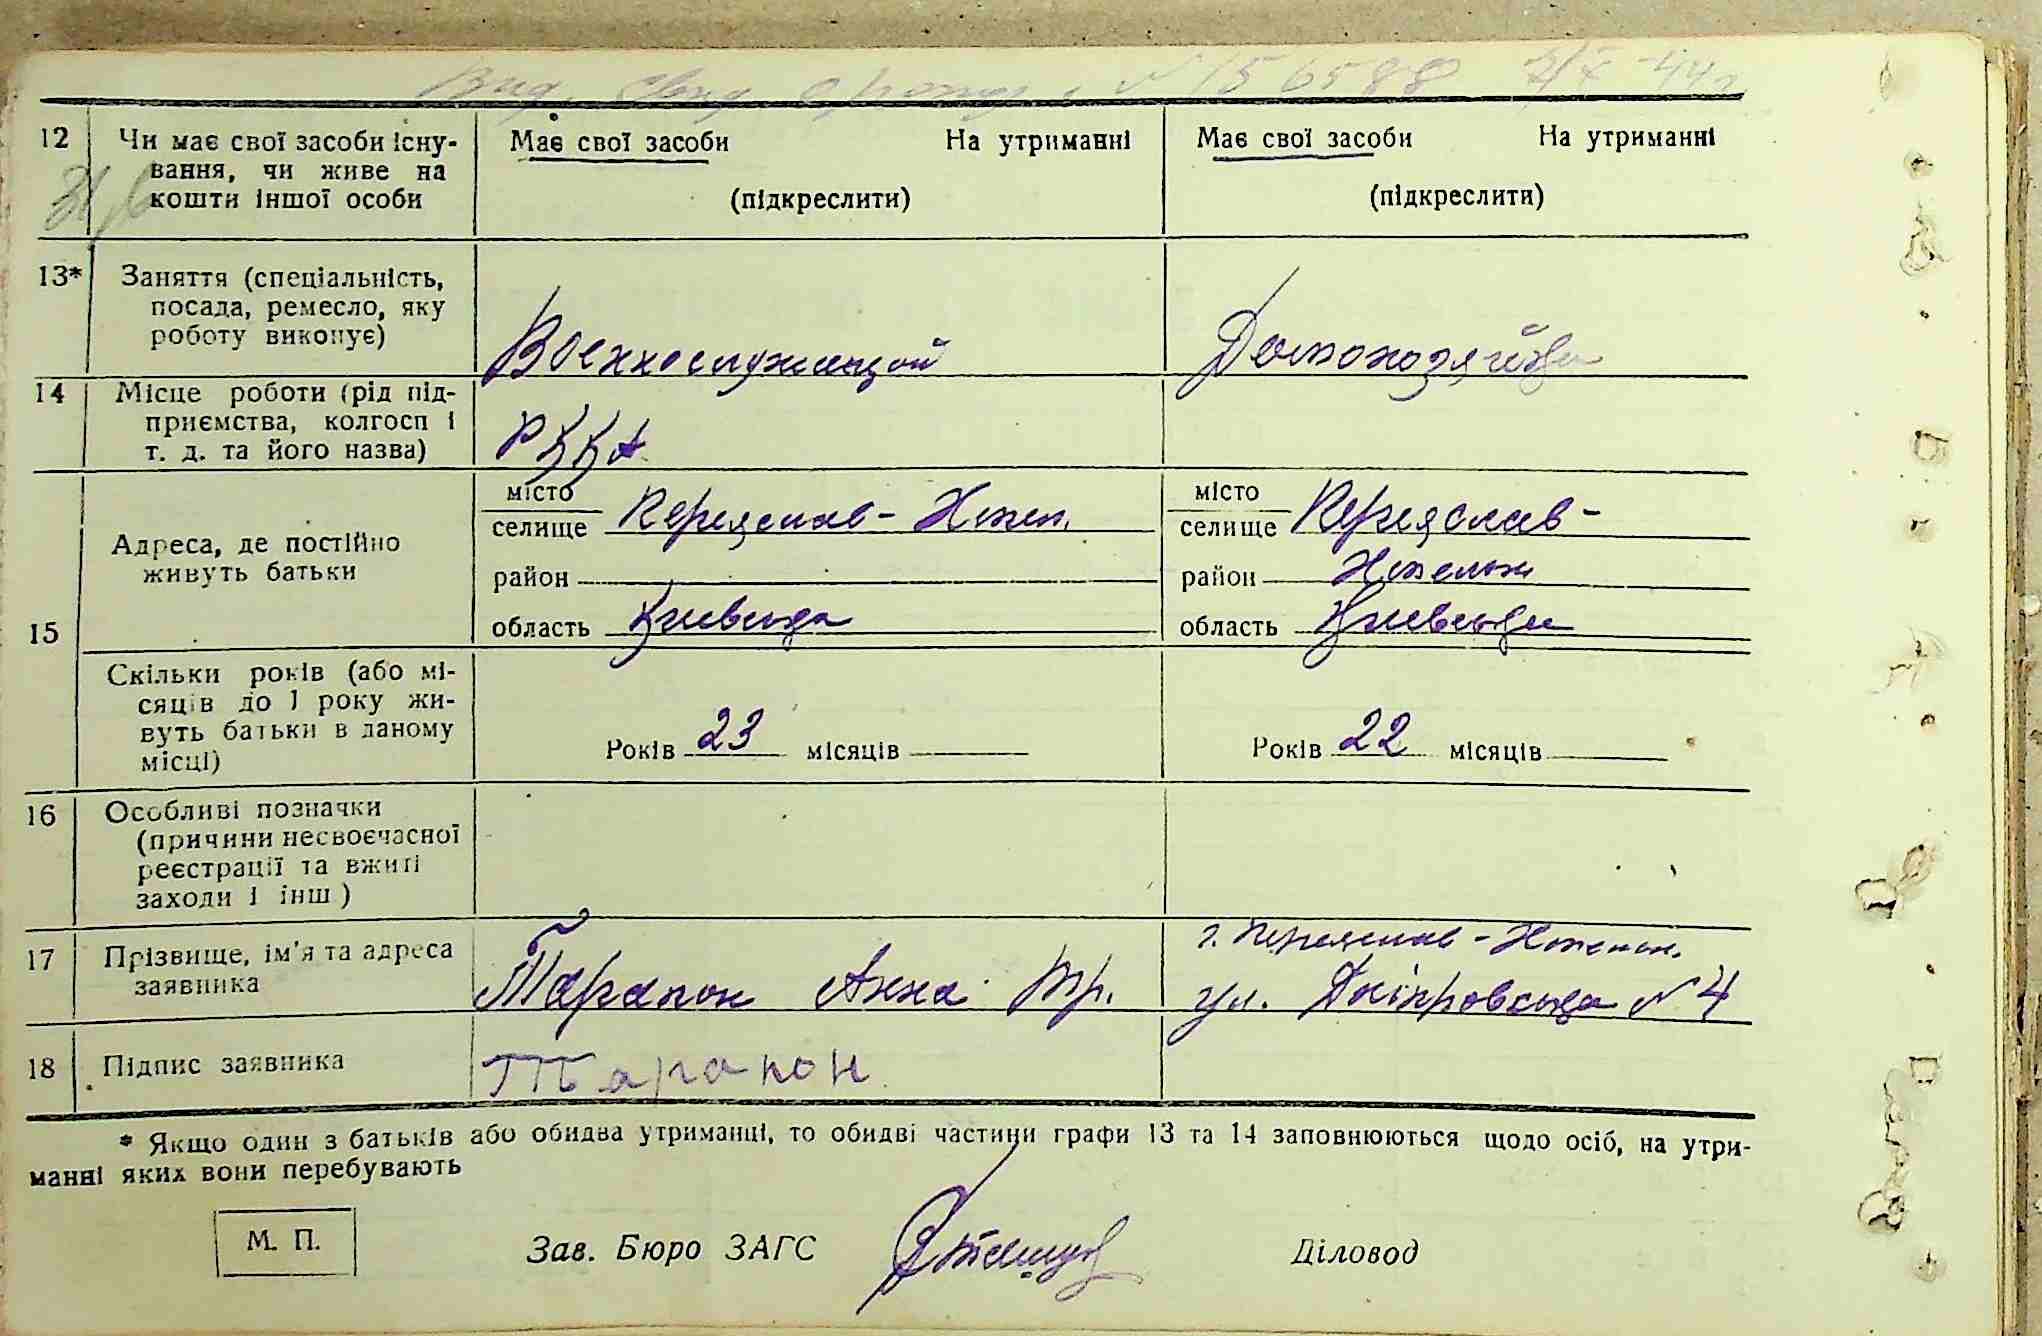 № 156588 44 г
12 Чи має свої засоби існу-
вання, чи живе на
кошти іншої особи
Має свої засоби На утриманні
(підкреслити)
Має свої засоби На утриманні
(підкреслити)
13* Заняття (спеціальність,
посада, ремесло, яку
роботу виконує)
Военнослужащий
Домохозяйка
14 Місце роботи (рід під-
приємства, колгосп і
т. д. та його назва)
РККА
15 Адреса, де постійно
живуть батьки
місто
селище Переяслав-Хмел.
район
область Киевская
місто
селище Переяслав-
район Хмельн
область Киевская
Скільки років (або мі-
сяців до 1 року жи-
вуть батьки в даному
місці)
Років 23 місяців
Років 22 місяців
16 Особливі позначки
(причини несвоєчасної
реєстрації та вжиті
заходи і інш)
17 Прізвище, ім'я та адреса
заявника
Тарапон Анна Тр.
г. Переяслав-Хмельн.
ул. Дніпровская №4
18 Підпис заявника
Тарапон
* Якщо один з батьків або обидва утриманці, то обидві частини графи 13 та 14 заповнюються щодо осіб, на утри-
манні яких вони перебувають
М. П.
Зав. Бюро ЗАГС
Діловод